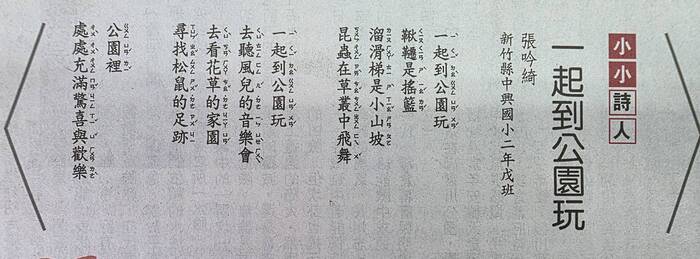 小小詩人
一起到公園玩
張吟綺
新竹縣中興國小二年戊班
一起到公園玩
鞦韆是搖籃
溜滑梯是小山坡
昆蟲在草叢中飛舞
一起到公園玩
去聽風兒的音樂會
去看花草的家園
尋找松鼠的足跡
公園裡
處處充滿驚喜與歡樂